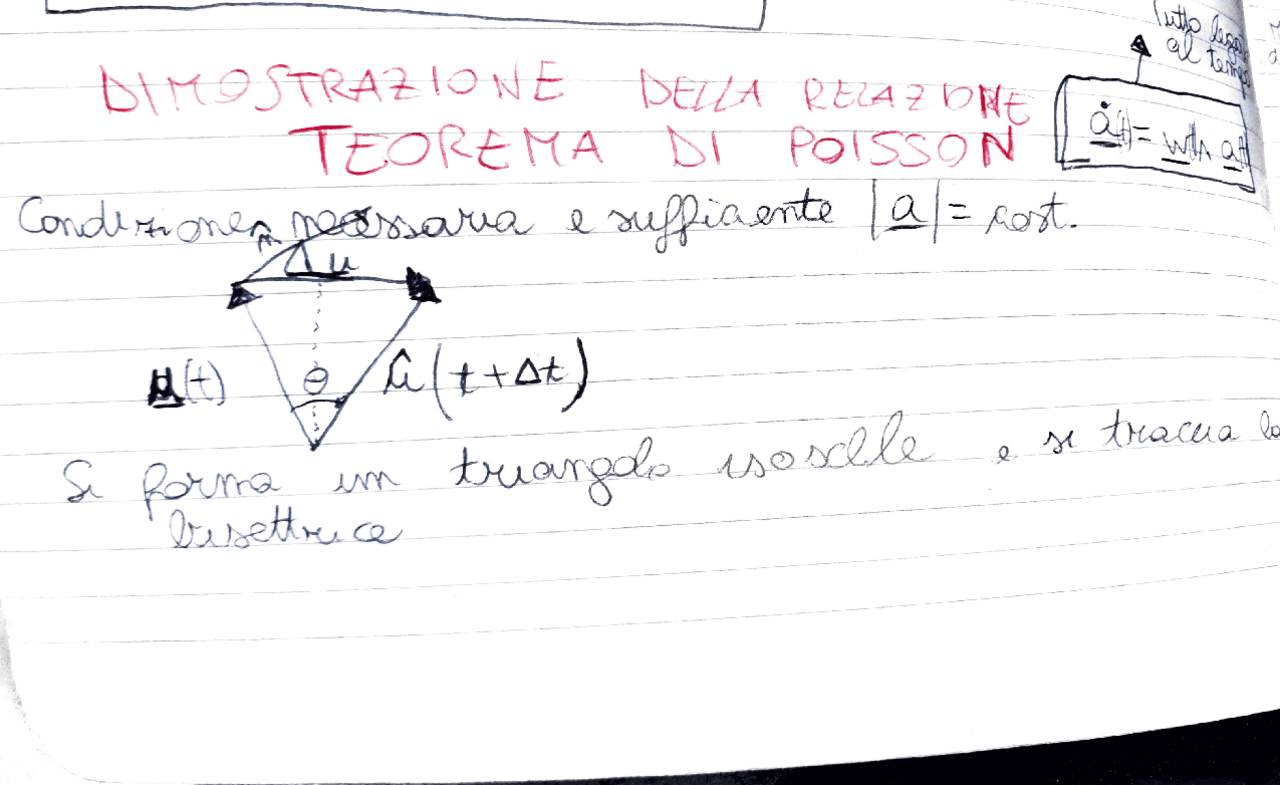 Tutto
al tempo
DIMOSTRAZIONE DELLA RELAZIONE
TEOREMA DI POISSON
ȧ(t) = w(t) ∧ a(t)
Condizione necessaria e sufficiente |a| = cost.
Δu
u(t) θ û(t+Δt)
Si forma un triangolo isoscele e si traccia la
bisettrice